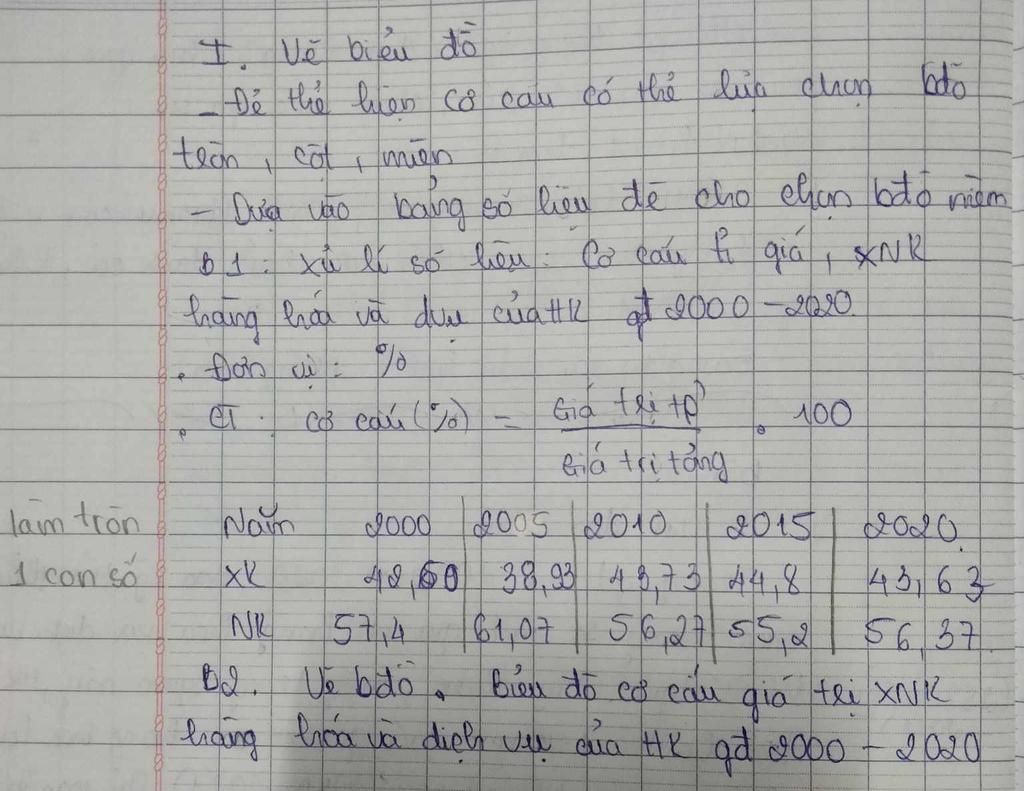 I. Vẽ biểu đồ
- Để thể hiện cơ cấu có thể lựa chọn bđồ
tròn, cột, miền
- Dựa vào bảng số liệu đề cho chọn bđồ miền
B1: Xử lí số liệu: Cơ cấu trị giá, XNK
hàng hóa và dvụ của HK gđ 2000-2020.
. Đơn vị: %
. CT: Cơ cấu (%) = Giá trị tp / Giá trị tổng . 100
làm tròn 1 con số
Năm 2000 2005 2010 2015 2020.
XK 42,60 38,93 43,73 44,8 43,63
NK 57,4 61,07 56,27 55,2 56,37
B2. Vẽ bđồ. Biểu đồ cơ cấu giá trị XNK
hàng hóa và dịch vụ của HK gđ 2000-2020